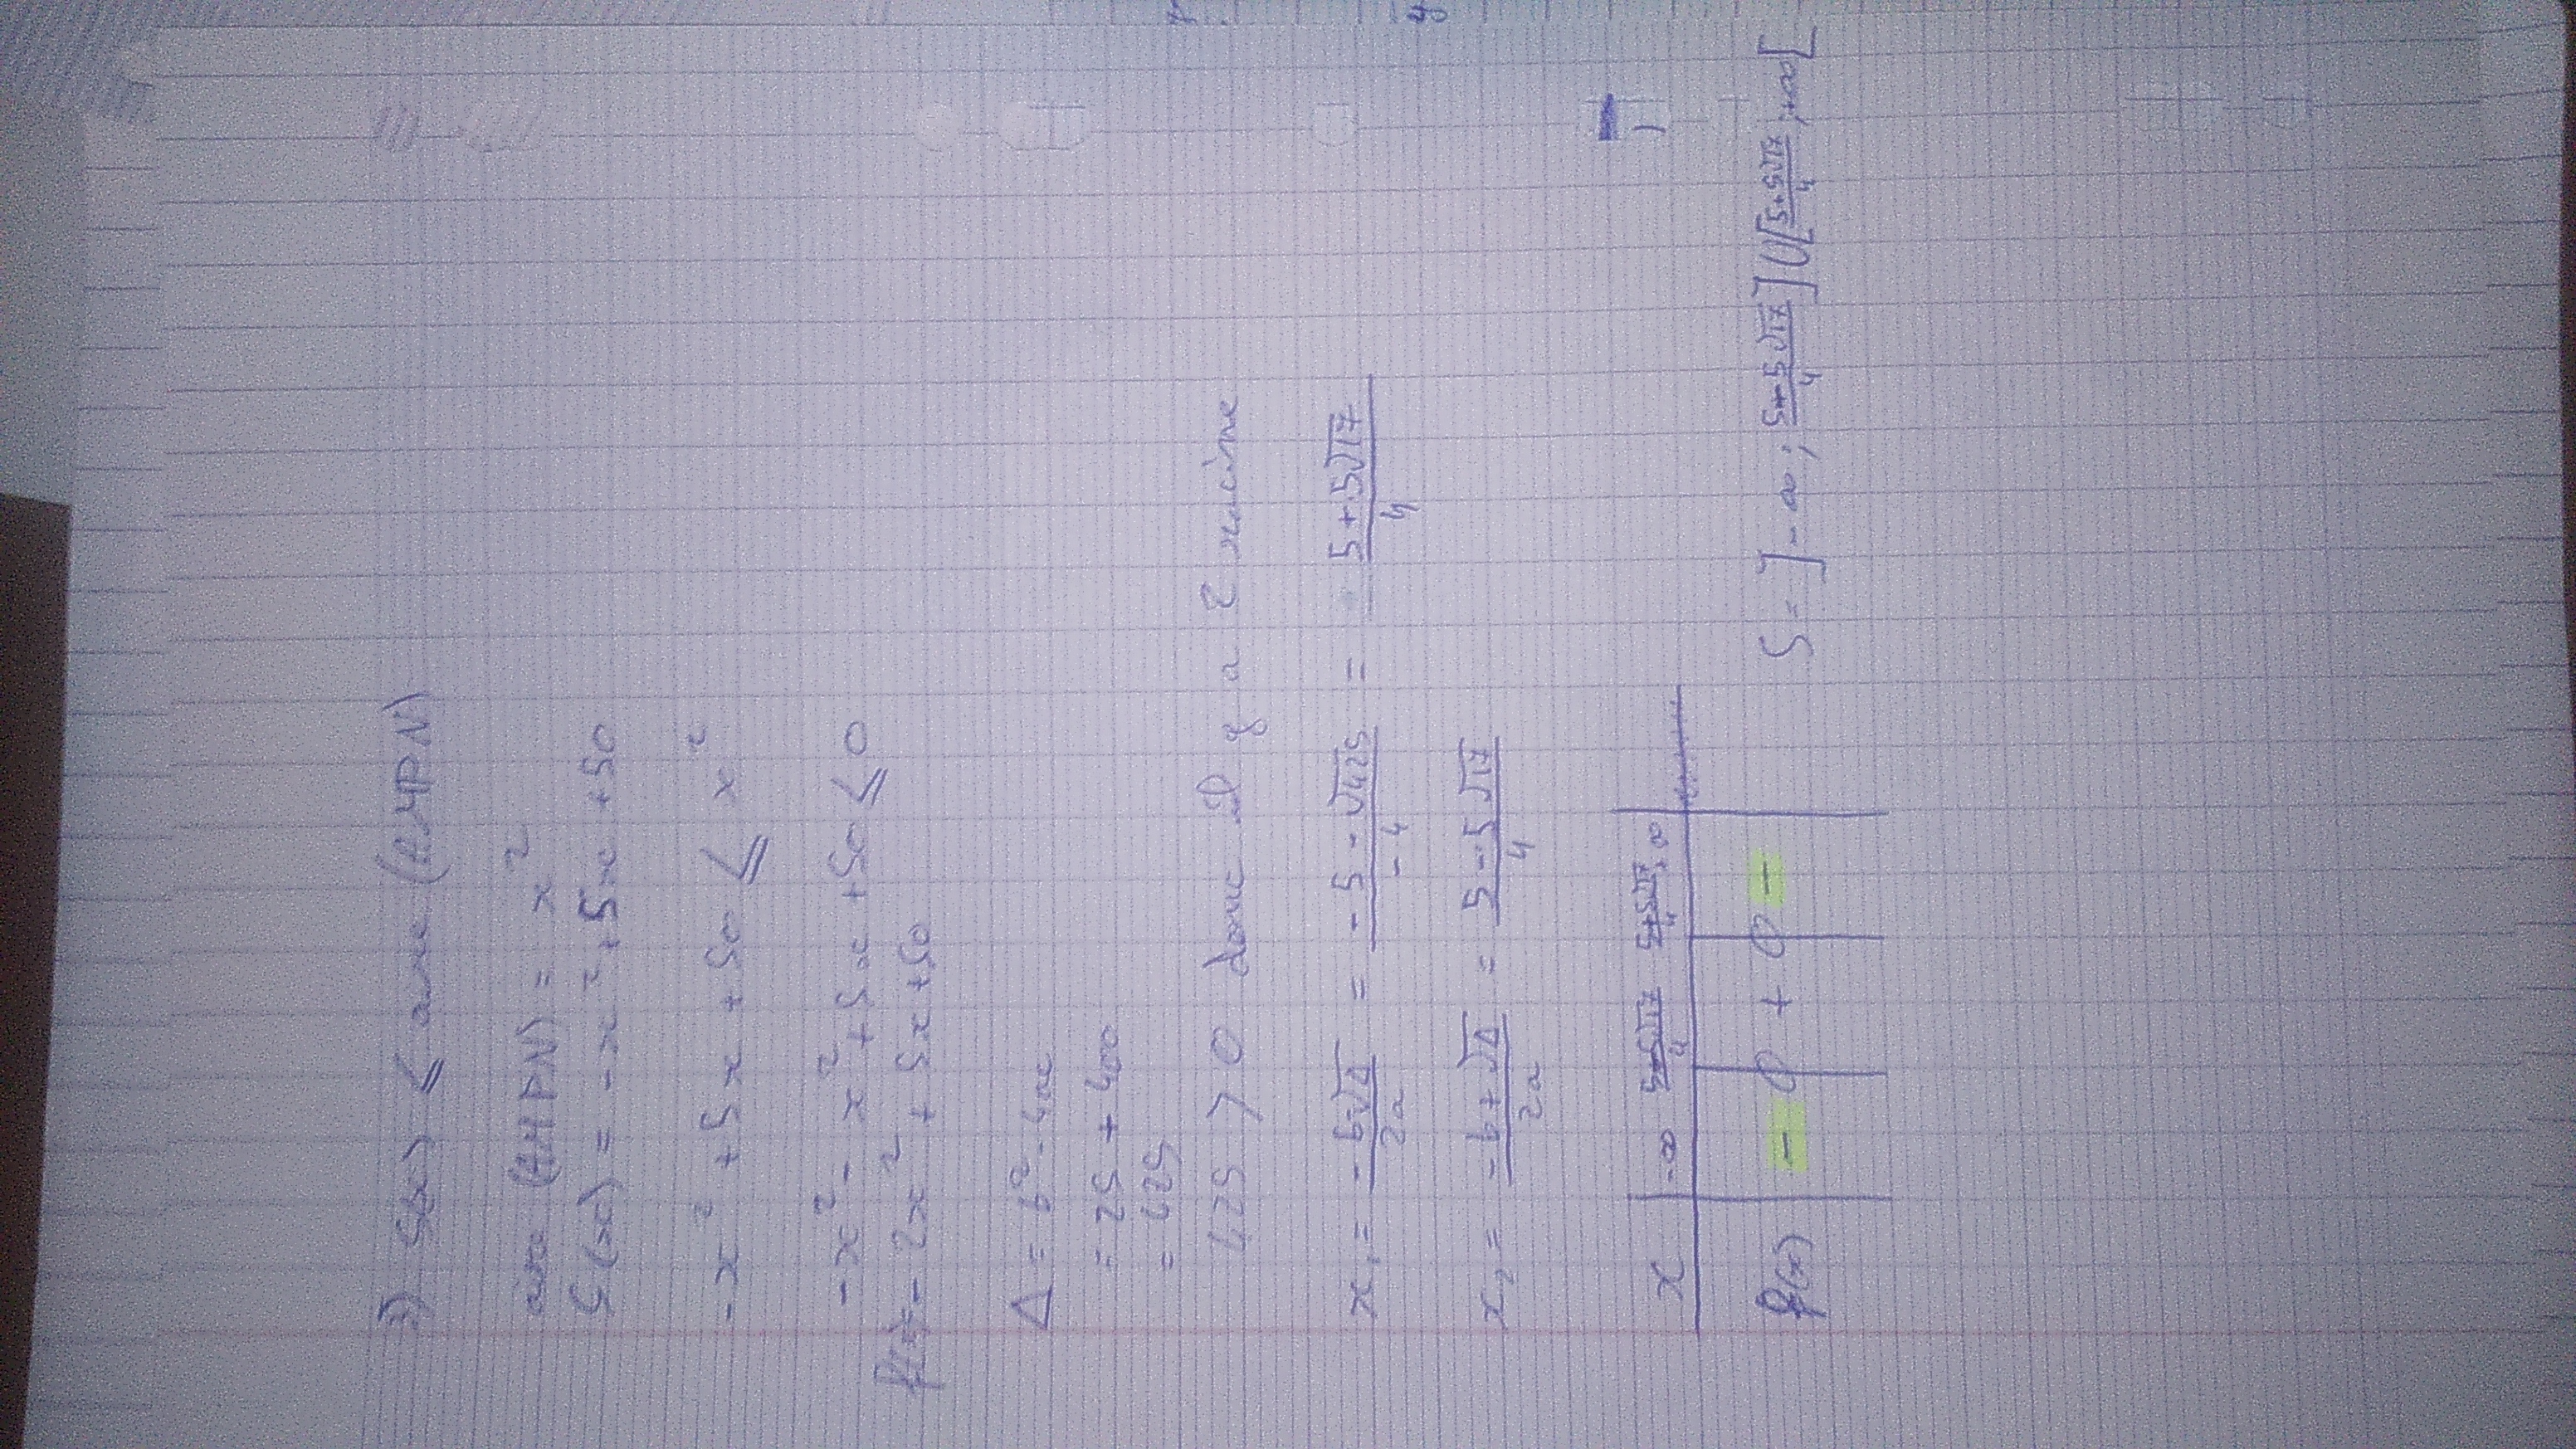 3) S(x) ⩽ aire (AMPN)
aire (AMPN) = x²
S(x) = -x² + 5x + 50
-x² + 5x + 50 ⩽ x²
-x² - x² + 5x + 50 ⩽ 0
f(x) = - 2x² + 5x + 50
Δ = b² - 4ac
= 25 + 400
= 425
425 > 0 donc il y a 2 racine
x₁ = (-b-√Δ)/2a = (-5-√425)/-4 = (5+5√17)/4
x₂ = (-b+√Δ)/2a = (5-5√17)/4
x -∞ (5-5√17)/4 (5+5√17)/4 +∞
f(x) - 0 + 0 -
S = ]-∞ ; (5-5√17)/4] ∪ [(5+5√17)/4 ; +∞[